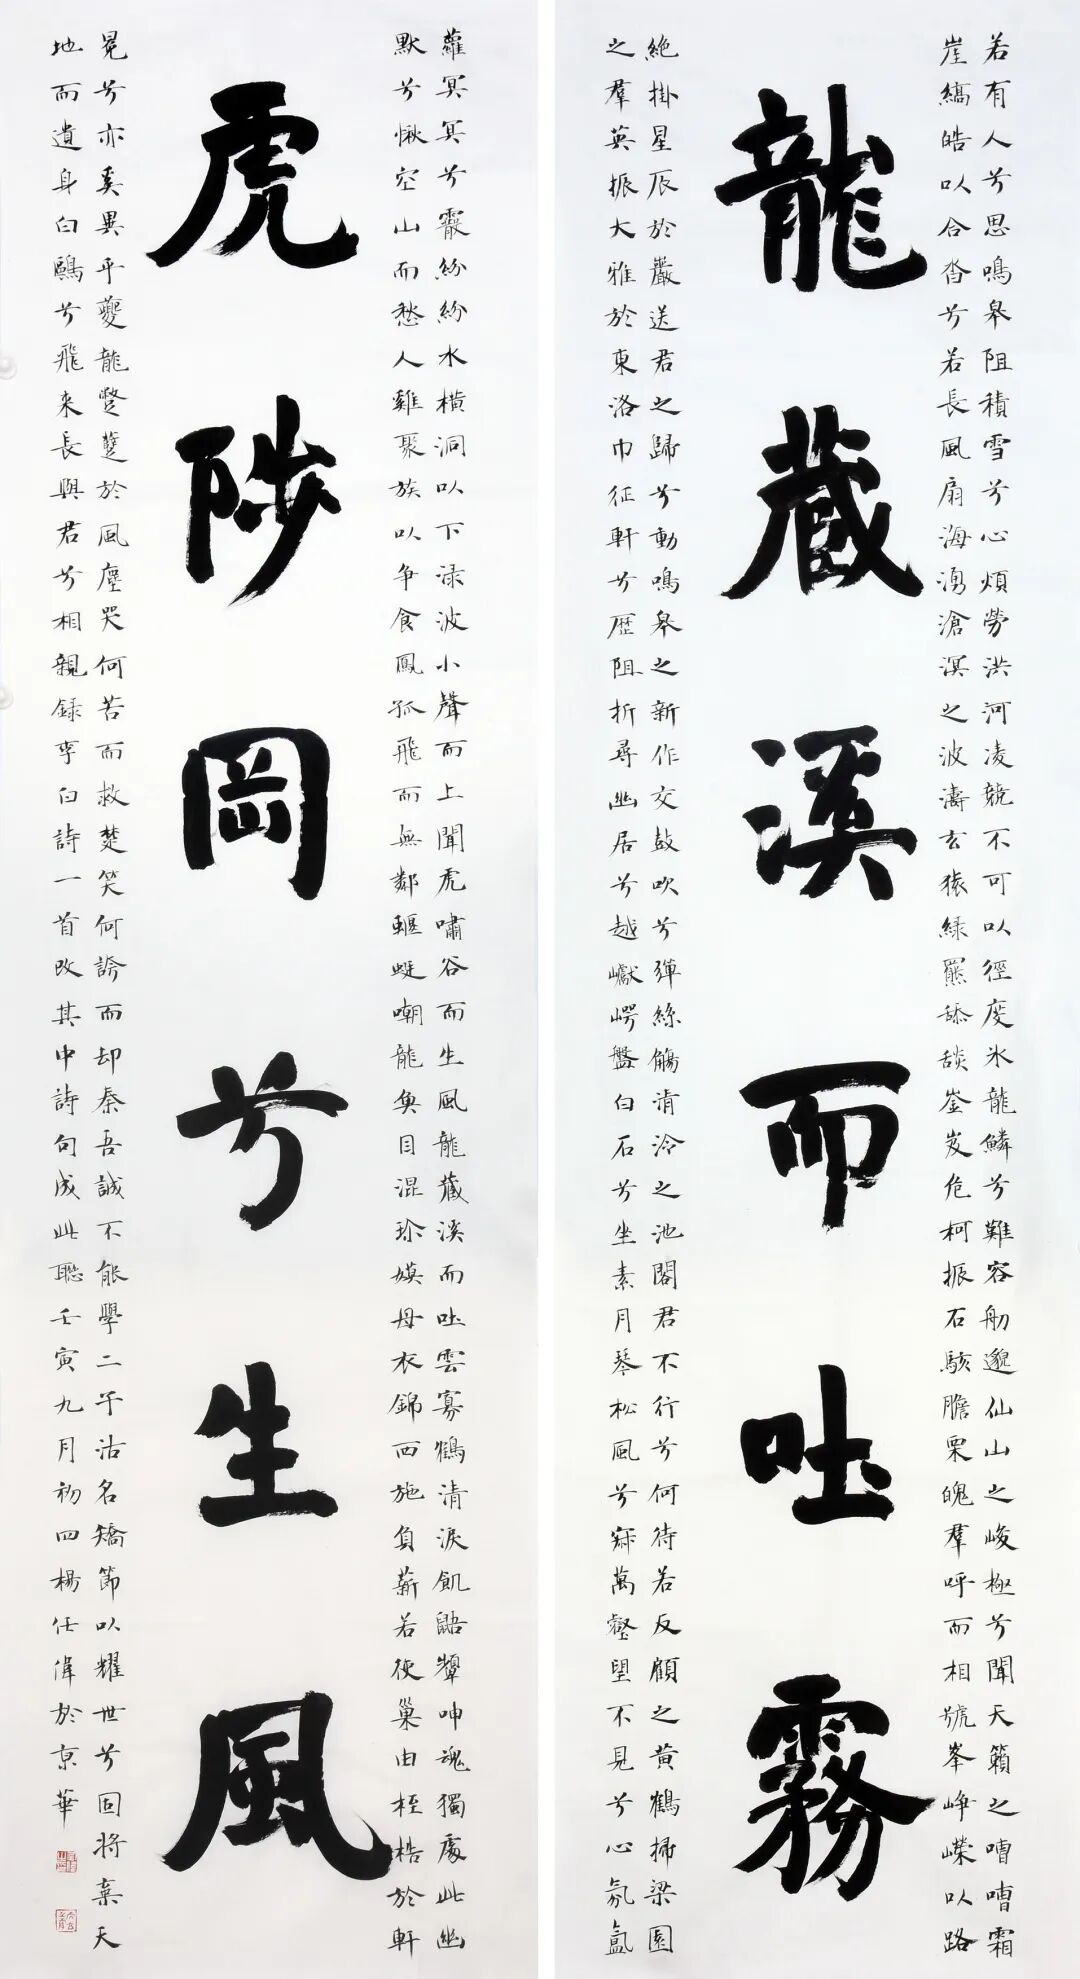 若有人兮思鳴皋阻積雪兮心煩勞洪河凌競不可以徑度氷龍鱗兮難容舠邈仙山之峻極兮聞天籟之嘈嘈霜
崖縞皓以合沓兮若長風扇海湧滄溟之波濤玄猿綠羆舔舕崟岌危柯振石駭膽栗魄羣呼而相號峯崢嶸以路
龍藏溪而吐霧
絶掛星辰於巖送君之歸兮動鳴皋之新作交鼓吹兮彈絲觴清泠之池閣君不行兮何待若反顧之黃鶴掃梁園
之羣英振大雅於東洛巾征軒兮歷阻折尋幽居兮越巘崿盤白石兮坐素月琴松風兮寂萬壑望不見兮心氛氳
蘿冥冥兮霰紛紛水橫洞以下淥波小聲而上聞虎嘯谷而生風龍藏溪而吐雲寡鶴清淚飢鼯嚬呻魂獨處此幽
默兮愀空山而愁人雞聚族以爭食鳳孤飛而無鄰蝘蜓嘲龍魚目混珍嫫母衣錦西施負薪若使巢由桎梏於軒
虎陟岡兮生風
冕兮亦奚異乎夔龍蹩躠於風塵哭何苦而救楚笑何誇而却秦吾誠不能學二子沽名矯節以耀世兮固將棄天
地而遺身白鷗兮飛來長與君兮相親録李白詩一首改其中詩句成此聯壬寅九月初四楊任偉於京華